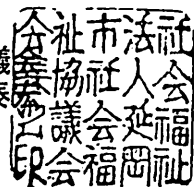 社会福祉
法人延岡
市社会福
祉協議会
之印